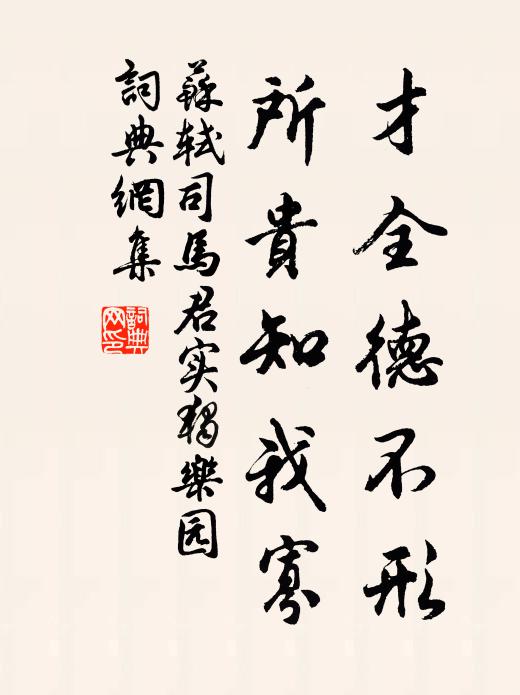 才全德不形
所貴知我寡
蘇軾司馬君实獨樂园
詞典網集
詞典网印